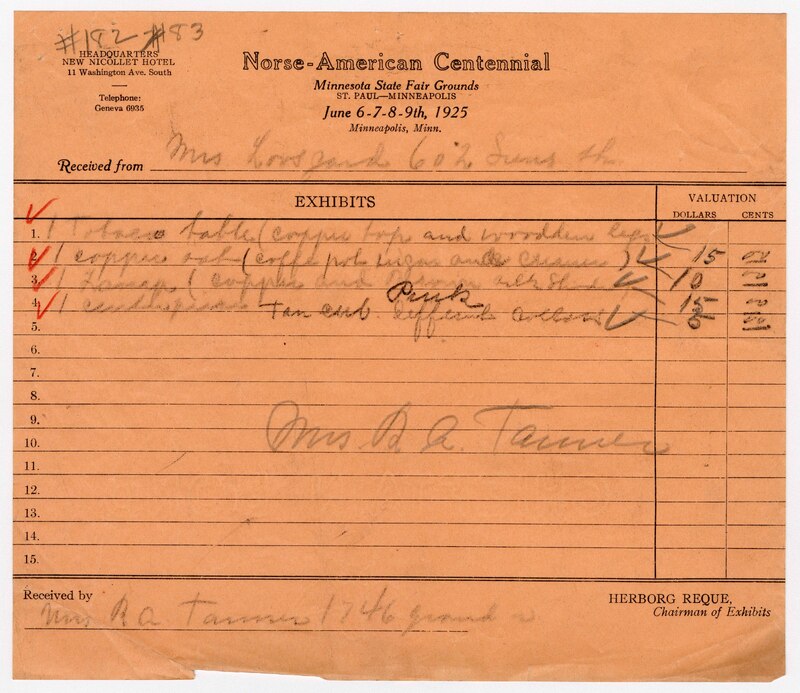 #182 #83
HEADQUARTERS
NEW NICOLLET HOTEL
11 Washington Ave. South
Telephone:
Geneva 6935
Norse-American Centennial
Minnesota State Fair Grounds
ST. PAUL—MINNEAPOLIS
June 6-7-8-9th, 1925
Minneapolis, Minn.
Received from Mrs 602
EXHIBITS
VALUATION
DOLLARS CENTS
1. 1 table (copper top and woodden legs
2. 1 copper set (coffe pot sugar and creamer) 15
3. 1 (copper and 10
4. 1 Pink 15
5. 5
6.
7.
8.
9.
Mrs R A. Tanner
10.
11.
12.
13.
14.
15.
Received by
Mrs R A Tanner 1746 grand
HERBORG REQUE,
Chairman of Exhibits